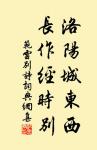 洛陽城東西
長作經時別
范雲別詩詞典網集